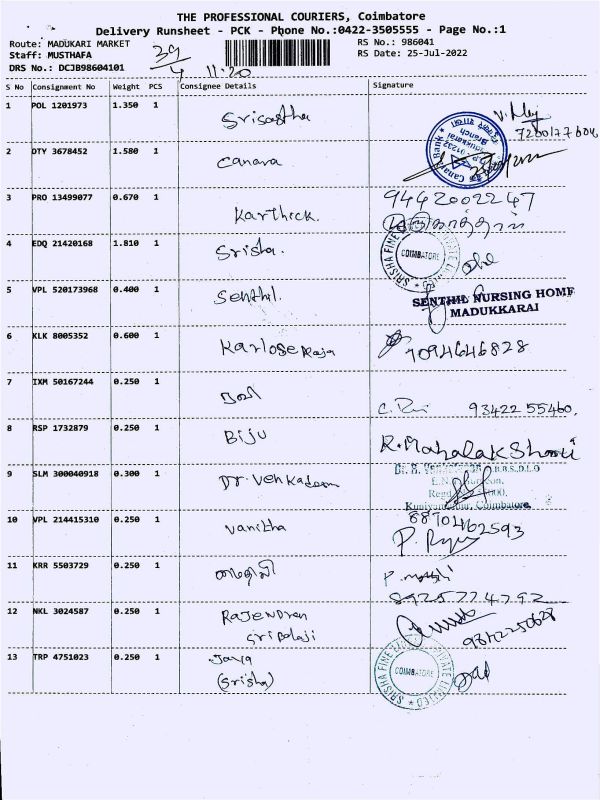 THE PROFESSIONAL COURIERS, Coimbatore
Delivery Runsheet - PCK - Phone No.:0422-3505555 - Page No.:1
Route: MADUKARI MARKET RS No.: 986041
Staff: MUSTHAFA RS Date: 25-Jul-2022
DRS No.: DCJB98604101 39/4 11.20
S No Consignment No Weight PCS Consignee Details Signature
1 POL 1201973 1.350 1 Srisastha
2 DTY 3678452 1.580 1 Canara Canara Bank
3 PRO 13499077 0.670 1 Karthick. 9442002247
4 EDQ 21420168 1.810 1 Srisha. SRISHA FINE COIMBATORE
5 VPL 520173968 0.400 1 Senthil. SENTHIL NURSING HOME
MADUKKARAI
6 KLK 8005352 0.600 1 Karlose Raja 7094646828
7 IXM 50167244 0.250 1 ரவி C. Ravi 9342255460.
8 RSP 1732879 0.250 1 Biju R. Mahalakshmi
9 SLM 300040918 0.300 1 Dr. Venkadesm Coimbatore
10 VPL 214415310 0.250 1 Vanitha 8870462593
11 KRR 5503729 0.250 1 8925774792
12 NKL 3024587 0.250 1 Rajendren
Sri Balaji
13 TRP 4751023 0.250 1 Jaya
(Srisha) SRISHA FINE PRIVATE LIMITED COIMBATORE